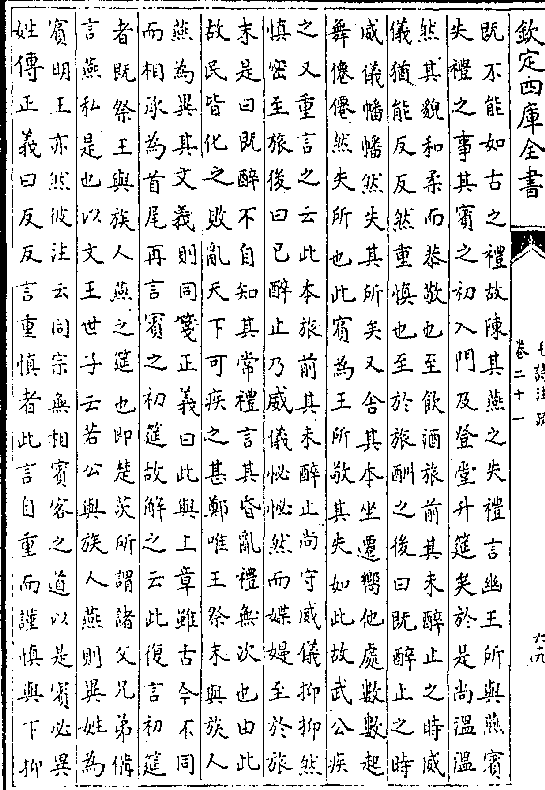 欽定四庫全書
毛詩注疏
卷二十一
六九
既不能如古之禮故陳其燕之失禮言幽王所與燕賓
失禮之事其賓之初入門及登堂升筵矣於是尚溫溫
然其貌和柔而恭敬也至飲酒旅前其未醉止之時威
儀猶能反反然重慎也至於旅酬之後曰既醉止之時
威儀幡幡然失其所矣又舍其本坐遷嚮他處數數起
舞僊僊然失所也此賓為王所敬其失如此故武公疾
之又重言之云此本旅前其未醉止尚守威儀抑抑然
慎密至旅後曰已醉止乃威儀怭怭然而媟嫚至於旅
末是曰既醉不自知其常禮言其昏亂禮無次也由此
故民皆化之敗亂天下可疾之甚鄭唯王祭末與族人
燕為異其文義則同箋正義曰此與上章雖古今不同
而相承為首尾再言賓之初筵故解之云此復言初筵
者既祭王與族人燕之筵也即楚茨所謂諸父兄弟備
言燕私是也以文王世子云若公與族人燕則異姓為
賓明王亦然彼注云同宗無相賓客之道以是賓必異
姓傳正義曰反反言重慎者此言自重而謹慎與下抑